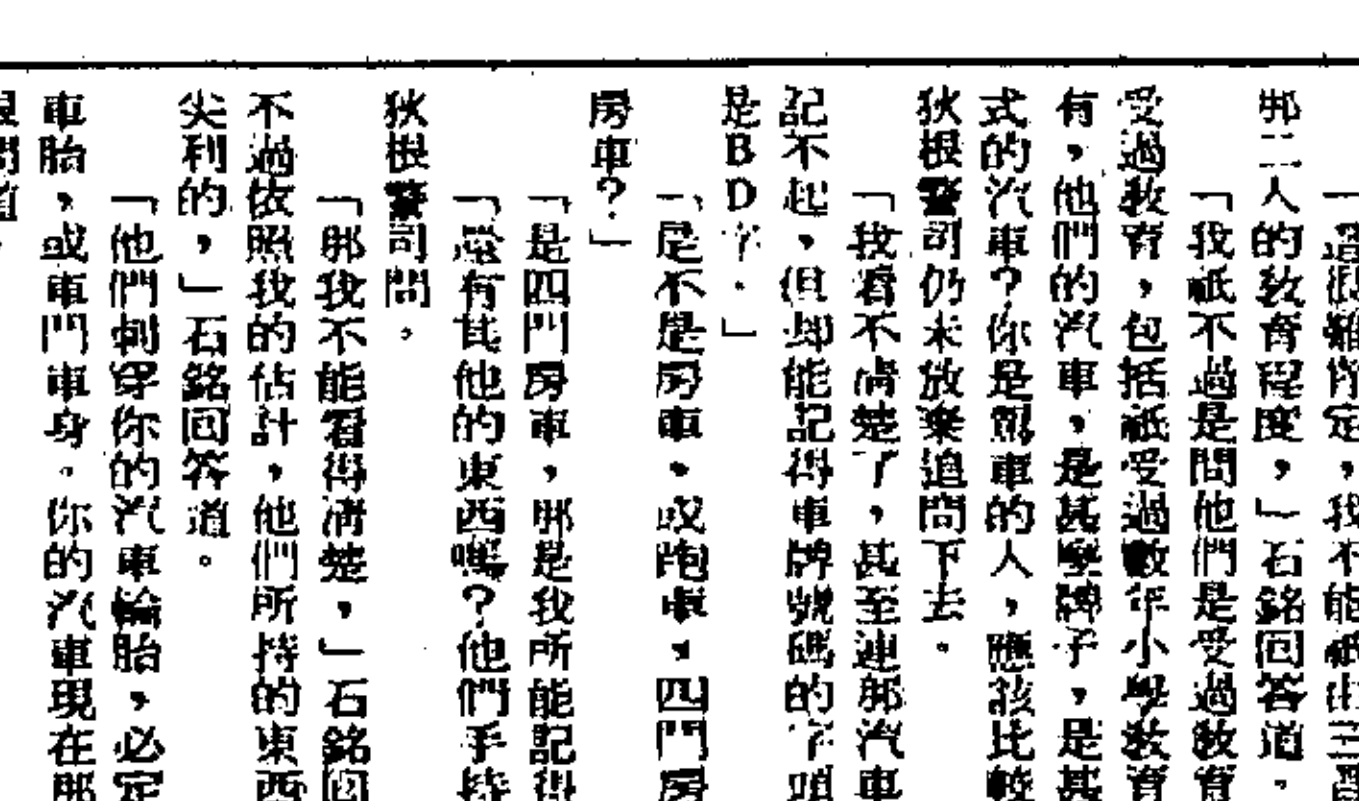 「這很難肯定,我不能祇由三
那二人的敎育程度,」石銘回答道。
「我祇不過是問他們是受過敎育
受過敎育,包括祇受過數年小學敎育
有,他們的汽車,是甚麼牌子,是甚
式的汽車?你是駕車的人,應該比較
狄根警司仍未放棄追問下去。
「我看不淸楚了,甚至連那汽車
記不起,但却能記得車牌號碼的字頭
是BD字.」
「是不是房車,或跑車,四門房
房車?」
「是四門房車,那是我所能記得
「還有其他的東西嗎?他們手持
狄根警司問。
「那我不能看得淸楚,」石銘回
不過依照我的估計,他們所持的東西
尖利的,」石銘回答道。
「他們刺穿你的汽車輪胎,必定
車胎,或車門車身。你的汽車現在那